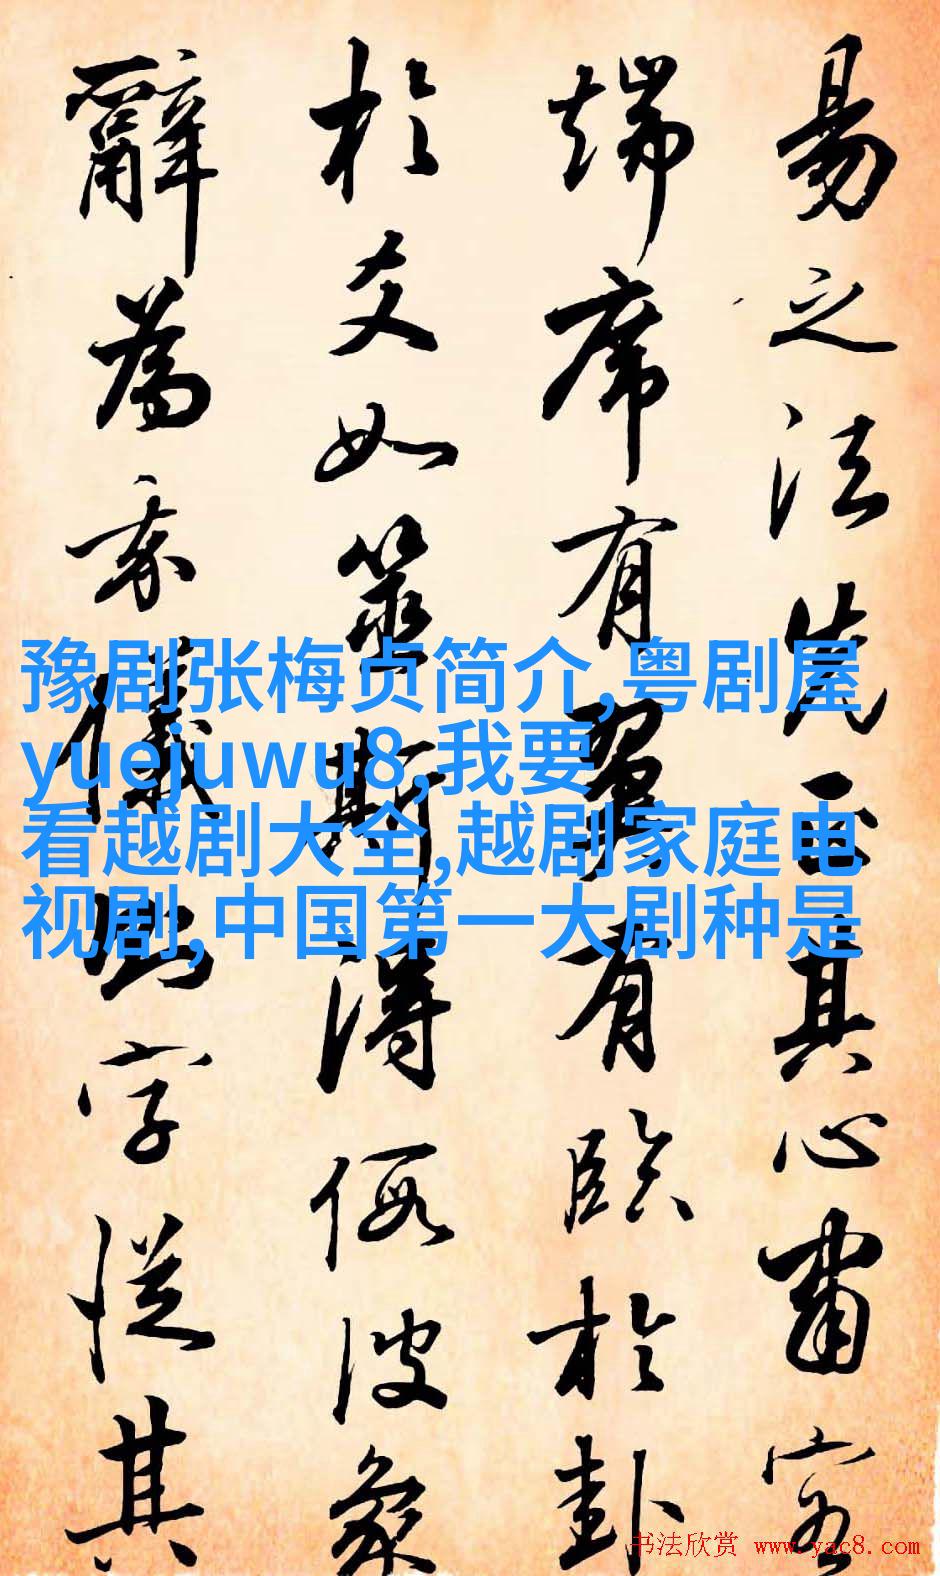 易之法先正其心肃容
端席有翼有临於卦
於爻如筮斯得假彼象
辭為意儀此字從其
豫剧张梅贞简介,粤剧屋
yuejuwu8,我要
看越剧大全,越剧家庭电
视剧,中国第一大剧种是
书法欣赏 www.yac8.com